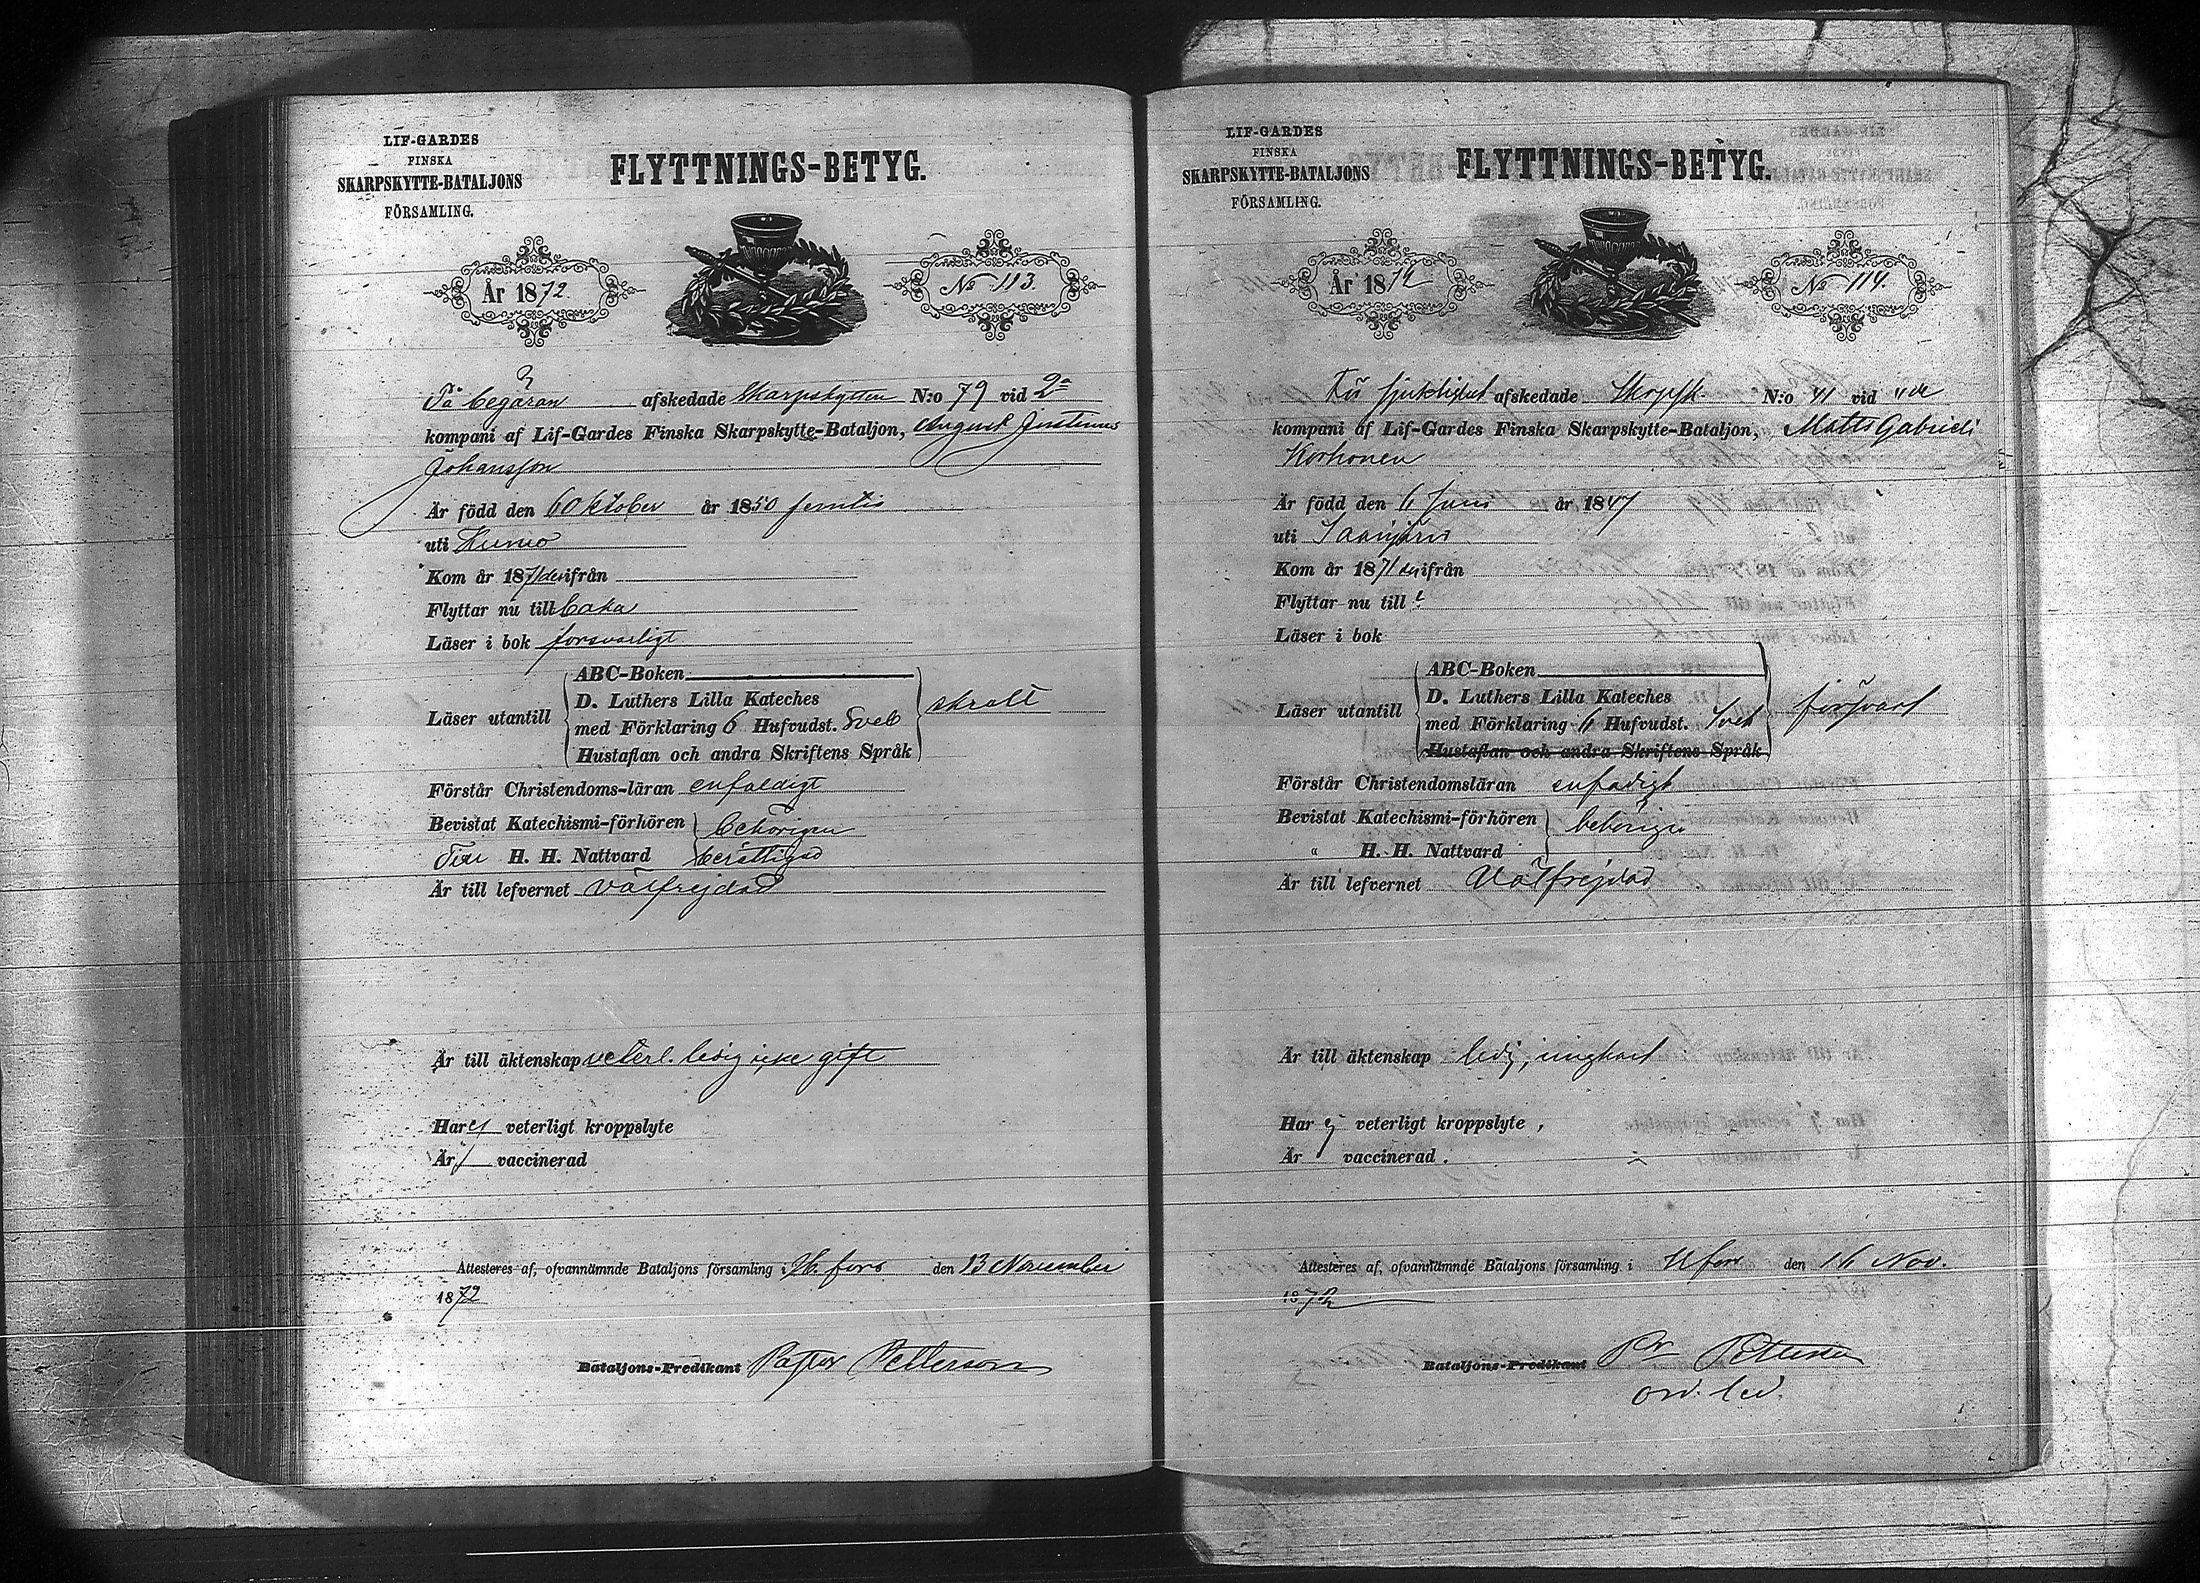 LIF-GARDES
FINSKA
SKARPSKYTTE-BATALJONS
FÖRSAMLING.
FLYTTNINGS-BETYG.
År 1872.
No 113.
På begäran afskedade Skarpskytten N:o 79 vid 2a
kompani af Lif-Gardes Finska Skarpskytte-Bataljon, August
Johansson
Är född den 6 Oktober år 1850 femtio
uti Kumo
Kom år 1871 derifrån
Flyttar nu till
Läser i bok forsvarligt
ABC-Boken
D. Luthers Lilla Kateches
Läser utantill
med Förklaring 6 Hufvudst. Sveb
skralt
Hustaflan och andra Skriftens Språk
Förstår Christendoms-läran enfaldigt
Bevistat Katechismi-förhören behörigen
H. H. Nattvard berättigad
Är till lefvernet välfrejdad
Är till äktenskap veterl. ledig icke gift
Har ej veterligt kroppslyte
Är vaccinerad
Attesteres af, ofvannämnde Bataljons församling i H.fors den 13 November
1872
Bataljons-Predikant Pastor Petterson
LIF-GARDES
FINSKA
SKARPSKYTTE-BATALJONS
FÖRSAMLING.
FLYTTNINGS-BETYG.
År 1872
No 114.
För sjuklighet afskedade Skarpsk. N:o 41 vid
kompani af Lif-Gardes Finska Skarpskytte-Bataljon, Matts Gabriel
Korhonen
Är född den 6 Juni år 1847
uti Saarijärvi
Kom år 1871 derifrån
Flyttar nu till
Läser i bok
ABC-Boken
D. Luthers Lilla Kateches
Läser utantill
med Förklaring 6 Hufvudst. Sveb
försvarl
Hustaflan och andra Skriftens Språk
Förstår Christendomsläran enfadigt
Bevistat Katechismi-förhören behörigen
" H. H. Nattvard
Är till lefvernet Välfrejdad
Är till äktenskap ledig, ungkarl
Har ej veterligt kroppslyte,
Är vaccinerad.
Attesteres af, ofvannämnde Bataljons församling i Hfors den 16 Nov.
1872
Bataljons-Predikant Pr Petterson